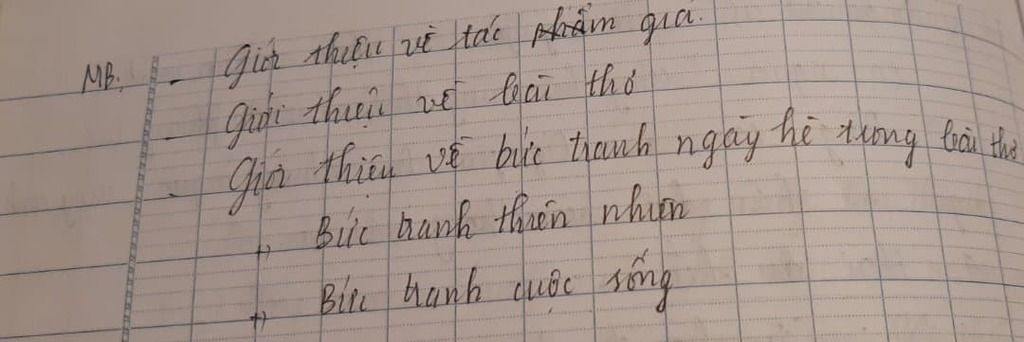 MB: - Giới thiệu về tác phẩm giả.
- Giới thiệu về bài thơ
- Giới thiệu về bức tranh ngày hè trong bài thơ
+ Bức tranh thiên nhiên
+ Bức tranh cuộc sống